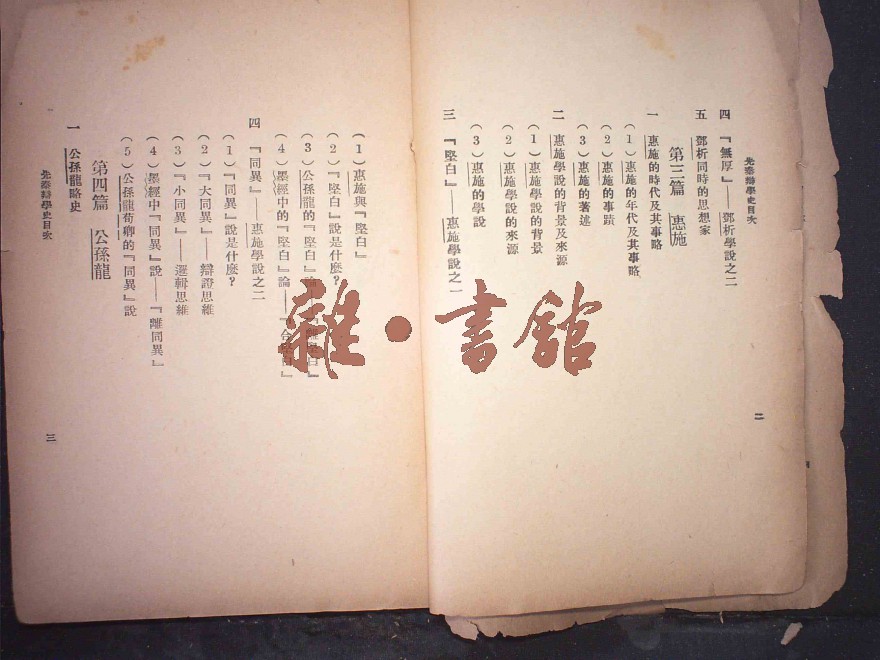 先秦辯學史目次
四 『無厚』——鄧析學說之二
五 鄧析同時的思想家
第三篇 惠施
一 惠施的時代及其事略
(1)惠施的年代及其事略
(2)惠施的事蹟
(3)惠施的著述
二 惠施學說的背景及來源
(1)惠施學說的背景
(2)惠施學說的來源
(3)惠施的學說
三 『堅白』——惠施學說之一
二
(1)惠施與『堅白』
(2)『堅白』說是什麼?
(3)公孫龍的『堅白』論——『離堅白』
(4)墨經中的『堅白』論——『合堅白』
四 『同異』——惠施學說之二
(1)『同異』說是什麼?
(2)『大同異』——辯證思維
(3)『小同異』——邏輯思維
(4)墨經中『同異』說——『離同異』
(5)公孫龍荀卿的『同異』說
第四篇 公孫龍
一 公孫龍略史
先秦辯學史目次
三
雜·書館